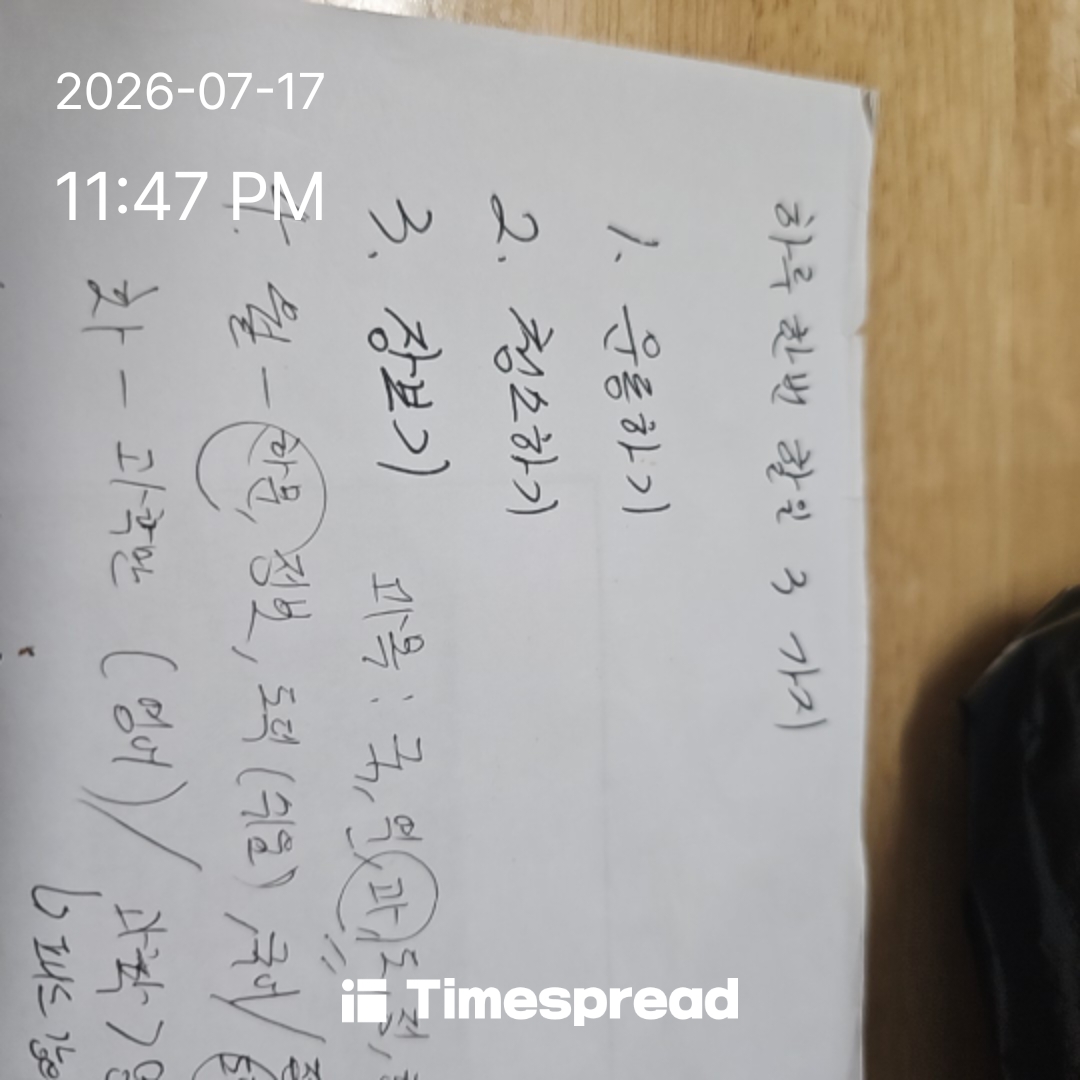 2026-07-17
11:47 PM
하루 한번 할일 3가지
1. 운동하기
2. 청소하기
3. 장보기
과목: 국, 역, 과, 도덕,
4. 월 - 한문, 정보, 도덕 (쉬움) 국어/
화 - 과학만 (영어)/ 과학 > 영
Timespread